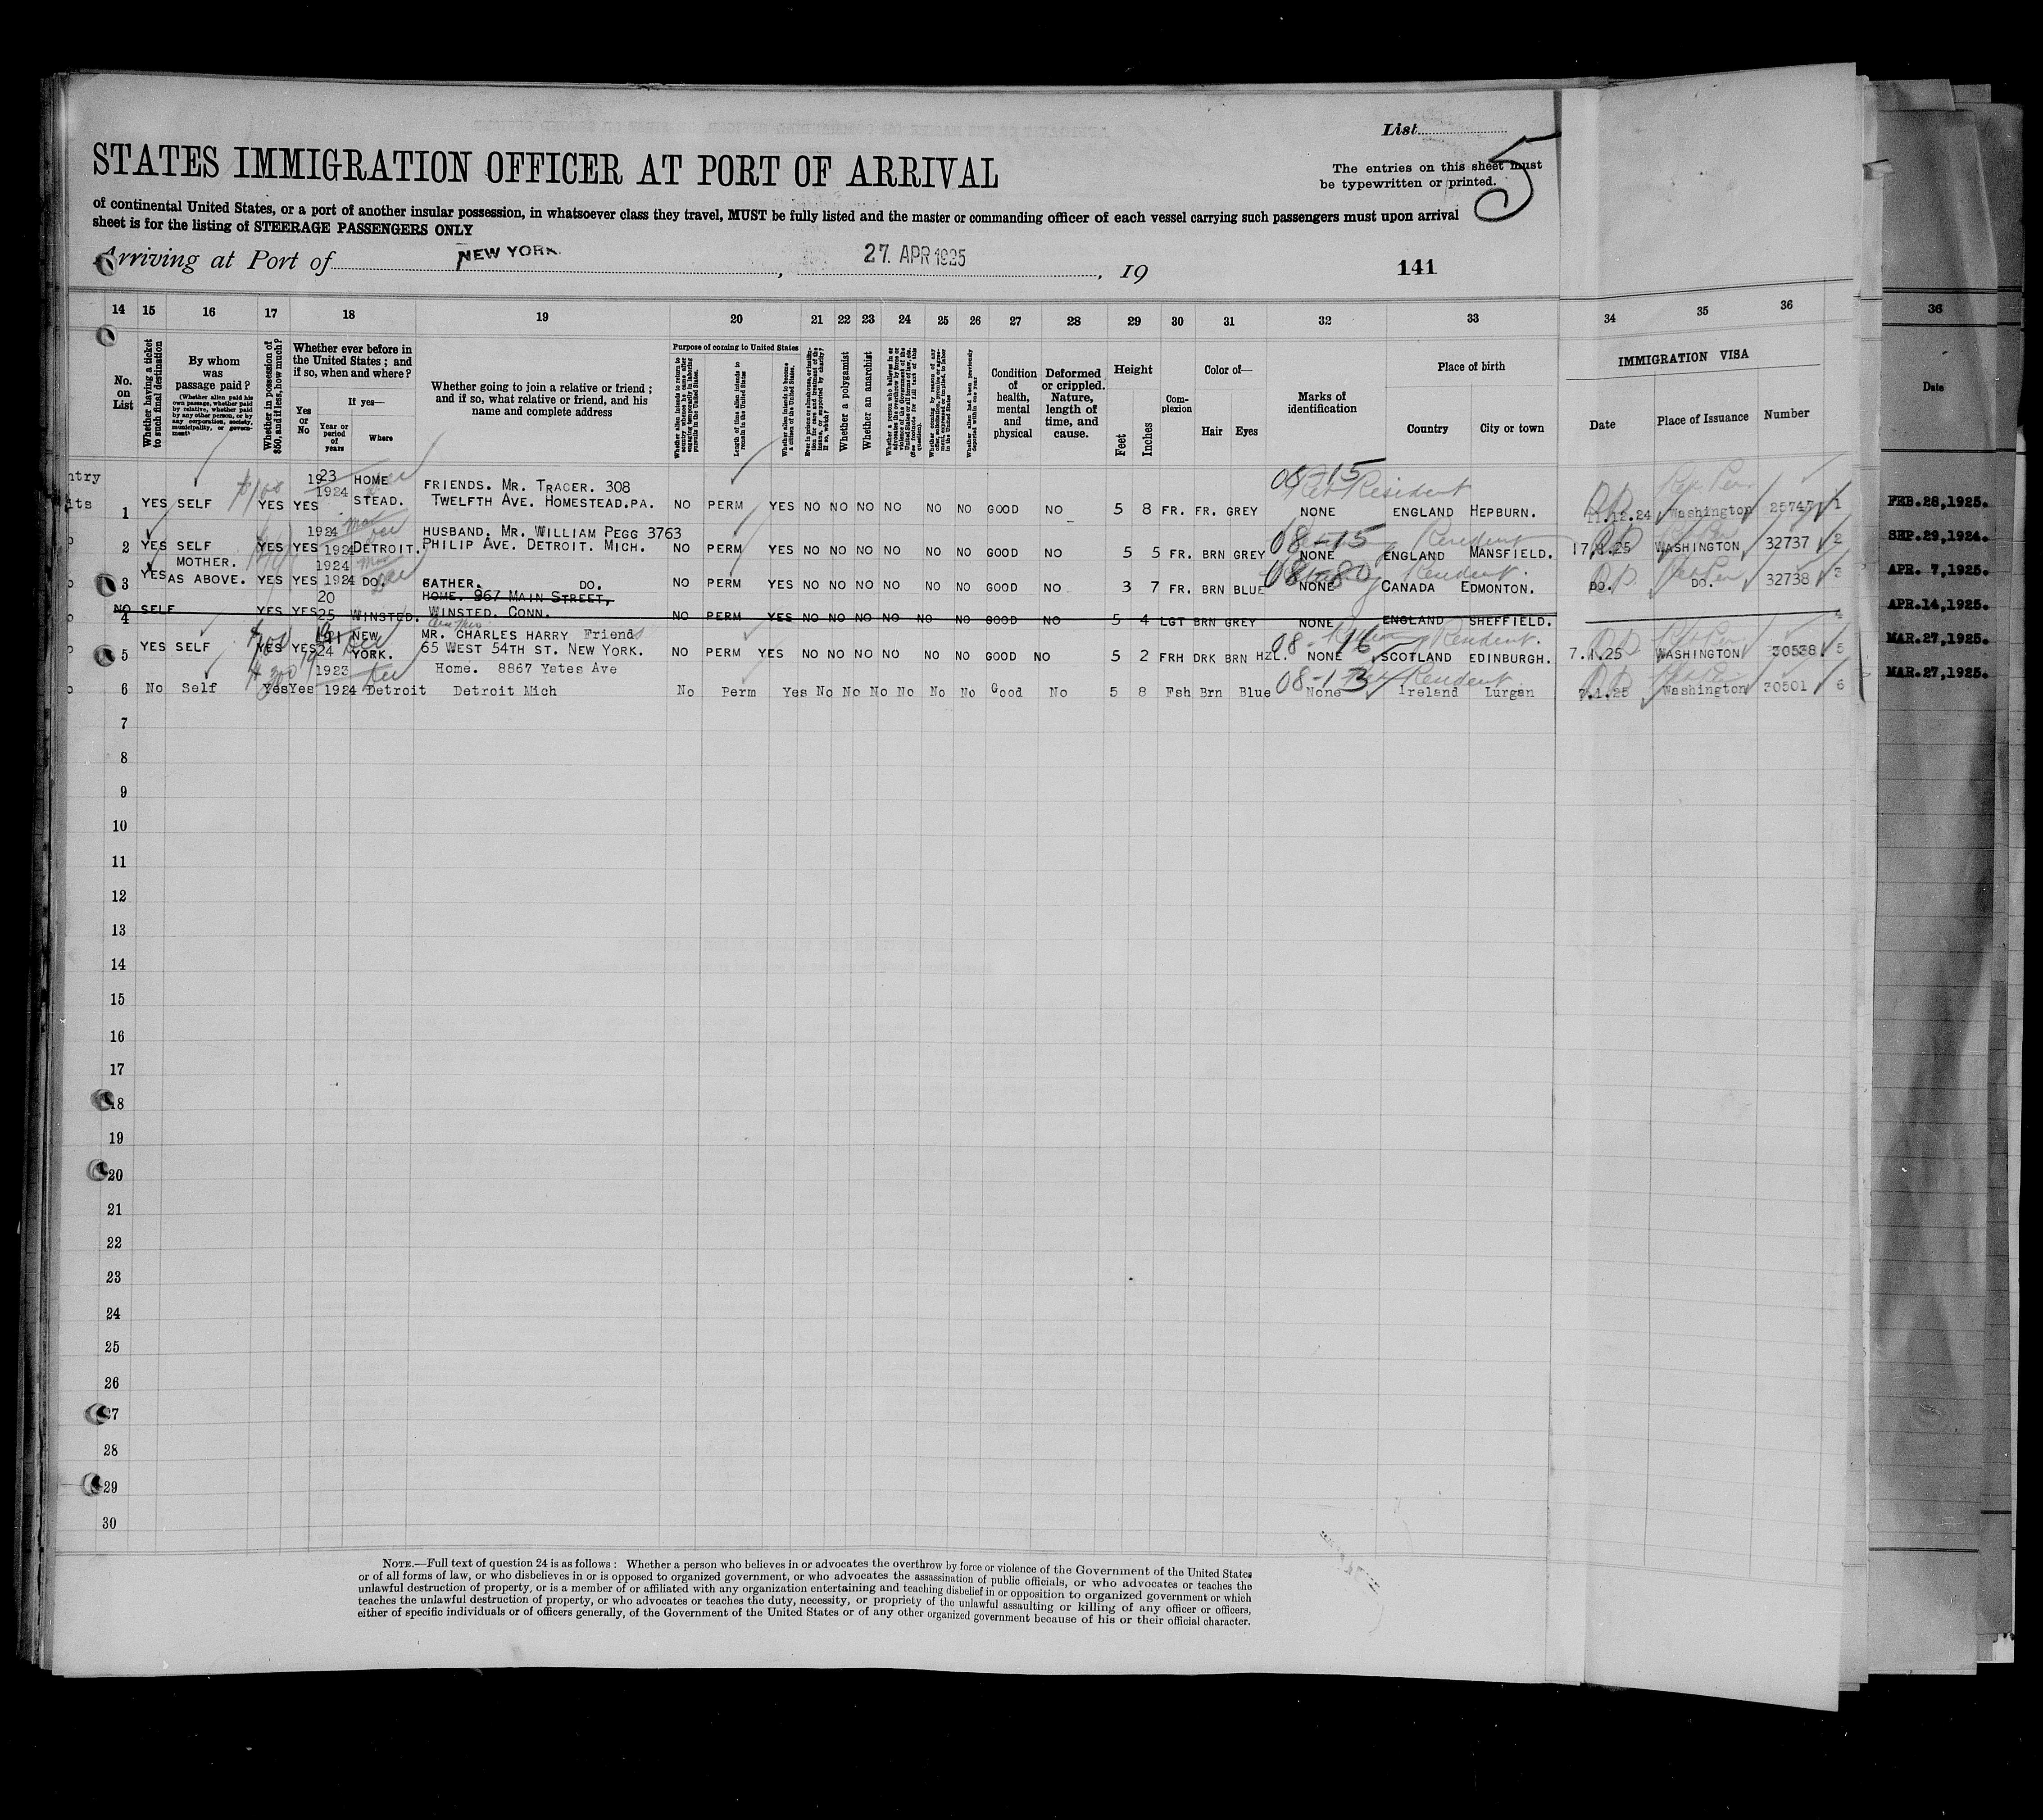 List
5
STATES IMMIGRATION OFFICER AT PORT OF ARRIVAL
The entries on this sheet must
be typewritten or printed.
of continental United States, or a port of another insular possession, in whatsoever class they travel, MUST be fully listed and the master or commanding officer of each vessel carrying such passengers must upon arrival
sheet is for the listing of STEERAGE PASSENGERS ONLY
Arriving at Port of NEW YORK. , 27 APR 1925 , 19
141
14 15 16 17 18 19 20 21 22 23 24 25 26 27 28 29 30 31 32 33 34 35 36
36
No. on List
Whether having a ticket to such final destination
By whom was passage paid?
(Whether alien paid his own passage, whether paid by relative, whether paid by any other person, or by any corporation, society, municipality, or government)
Whether in possession of $50, and if less, how much?
Whether ever before in the United States; and if so, when and where?
Yes or No
If yes—
Year or period of years
Where
Whether going to join a relative or friend; and if so, what relative or friend, and his name and complete address
Purpose of coming to United States
Length of time alien intends to remain in the United States
Whether alien intends to become a citizen of the United States.
Whether a polygamist
Whether an anarchist
Condition of health, mental and physical
Deformed or crippled. Nature, length of time, and cause.
Height
Feet
Inches
Com-plexion
Color of—
Hair
Eyes
Marks of identification
Place of birth
Country
City or town
IMMIGRATION VISA
Date
Place of Issuance
Number
Date
1 YES SELF YES YES 1923 1924 HOME STEAD. FRIENDS. MR. TRACER. 308 TWELFTH AVE. HOMESTEAD.PA. NO PERM YES NO NO NO NO NO NO GOOD NO 5 8 FR. FR. GREY 08-15 Ret Resident NONE ENGLAND HEPBURN. 11.12.24 Washington 25747 1
FEB.28,1925.
2 YES SELF YES YES 1924 1924 DETROIT. HUSBAND. MR. WILLIAM PEGG 3763 PHILIP AVE. DETROIT. MICH. NO PERM YES NO NO NO NO NO NO GOOD NO 5 5 FR. BRN GREY 08-15 Resident NONE ENGLAND MANSFIELD. 17.1.25 WASHINGTON 32737 2
SEP.29,1924.
3 YES MOTHER. AS ABOVE. YES YES 1924 1924 DO. DO. NO PERM YES NO NO NO NO NO NO GOOD NO 3 7 FR. BRN BLUE 08-80 Resident NONE CANADA EDMONTON. DO. DO. 32738 3
APR. 7,1925.
4 NO SELF YES YES 20 25 WINSTED. HOME. 967 MAIN STREET, WINSTED. CONN. NO PERM YES NO NO NO NO NO NO GOOD NO 5 4 LGT BRN GREY NONE ENGLAND SHEFFIELD. 4
APR.14,1925.
5 YES SELF YES YES 24 NEW YORK. MR. CHARLES HARRY Friends 65 WEST 54TH ST. NEW YORK. NO PERM YES NO NO NO NO NO NO GOOD NO 5 2 FRH DRK BRN HZL. 08-16 Resident NONE SCOTLAND EDINBURGH. 7.1.25 WASHINGTON 30538 5
MAR.27,1925.
6 No Self Yes Yes 1923 1924 Detroit Home. 8867 Yates Ave Detroit Mich No Perm Yes No No No No No No Good No 5 8 Fsh Brn Blue 08-13 Resident None Ireland Lurgan 7.1.25 Washington 30501 6
MAR.27,1925.
7
8
9
10
11
12
13
14
15
16
17
18
19
20
21
22
23
24
25
26
27
28
29
30
NOTE.—Full text of question 24 is as follows: Whether a person who believes in or advocates the overthrow by force or violence of the Government of the United States
or of all forms of law, or who disbelieves in or is opposed to organized government, or who advocates the assassination of public officials, or who advocates or teaches the
unlawful destruction of property, or is a member of or affiliated with any organization entertaining and teaching disbelief in or opposition to organized government or which
teaches the unlawful destruction of property, or who advocates or teaches the duty, necessity, or propriety of the unlawful assaulting or killing of any officer or officers,
either of specific individuals or of officers generally, of the Government of the United States or of any other organized government because of his or their official character.